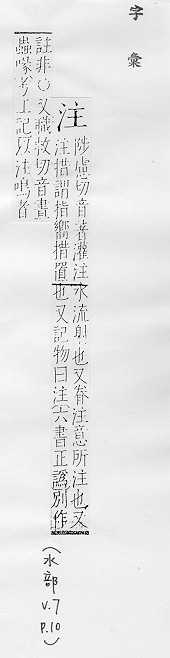 字彙
注
陟慮切音著灌注水流射也又眷注意所注也又
注措謂指嚮措置也又記物曰注六書正譌別作
註非○又職救切音晝
蟲喙考工記以注鳴者
(水部 V.7 P.10)